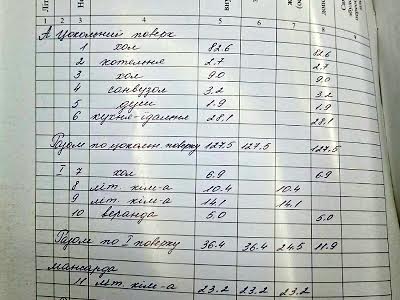 1 2 3 4 5 6 7 8 9
А цокольний поверх
1 хол 82.6 82.6
2 котельня 2.7 2.7
3 хол 9.0 9.0
4 санвузол 3.2 3.2
5 душ 1.9 1.9
6 кухня-їдальня 28.1 28.1
Разом по цоколн поверху 127.5 127.5 127.5
I 7 хол 6.9 6.9
8 літ. кім-а 10.4 10.4
9 літ. кім-а 14.1 14.1
10 веранда 5.0 5.0
Разом по I поверху 36.4 36.4 24.5 11.9
мансарда
11 літ. кім-а 23.2 23.2 23.2